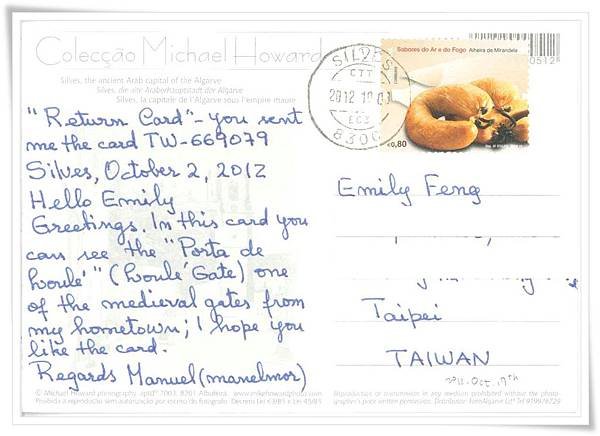 Colecção Michael Howard
Silves, the ancient Arab capital of the Algarve
Silves, die alte Araberhauptstadt der Algarve
Silves, la capitale de l'Algarve sous l'empire maure
"Return Card"- you sent
me the card TW-669079
Silves, October 2, 2012
Hello Emily
Greetings. In this card you
can see the "Porta de
Loulé" (Loulé Gate) one
of the medieval gates from
my hometown; I hope you
like the card.
Regards Manuel (manelmor)
© Michael Howard photography, aptdº 2003, 8201 Albufeira. www.mikehowardphoto.com
Proibida a reprodução sem autorização por escrito do fotografo. Decreto Lei 63/85 e Lei 45/85
SILVES
CTT
2012 10
8300
Sabores do Ar e do Fogo Alheira de Mirandela
€0,80
00512
Emily Feng
Taipei
TAIWAN
2012. Oct. 19th
Reproduction or transmission in any medium prohibited without the photo-
grapher's prior written permission. Distributor: